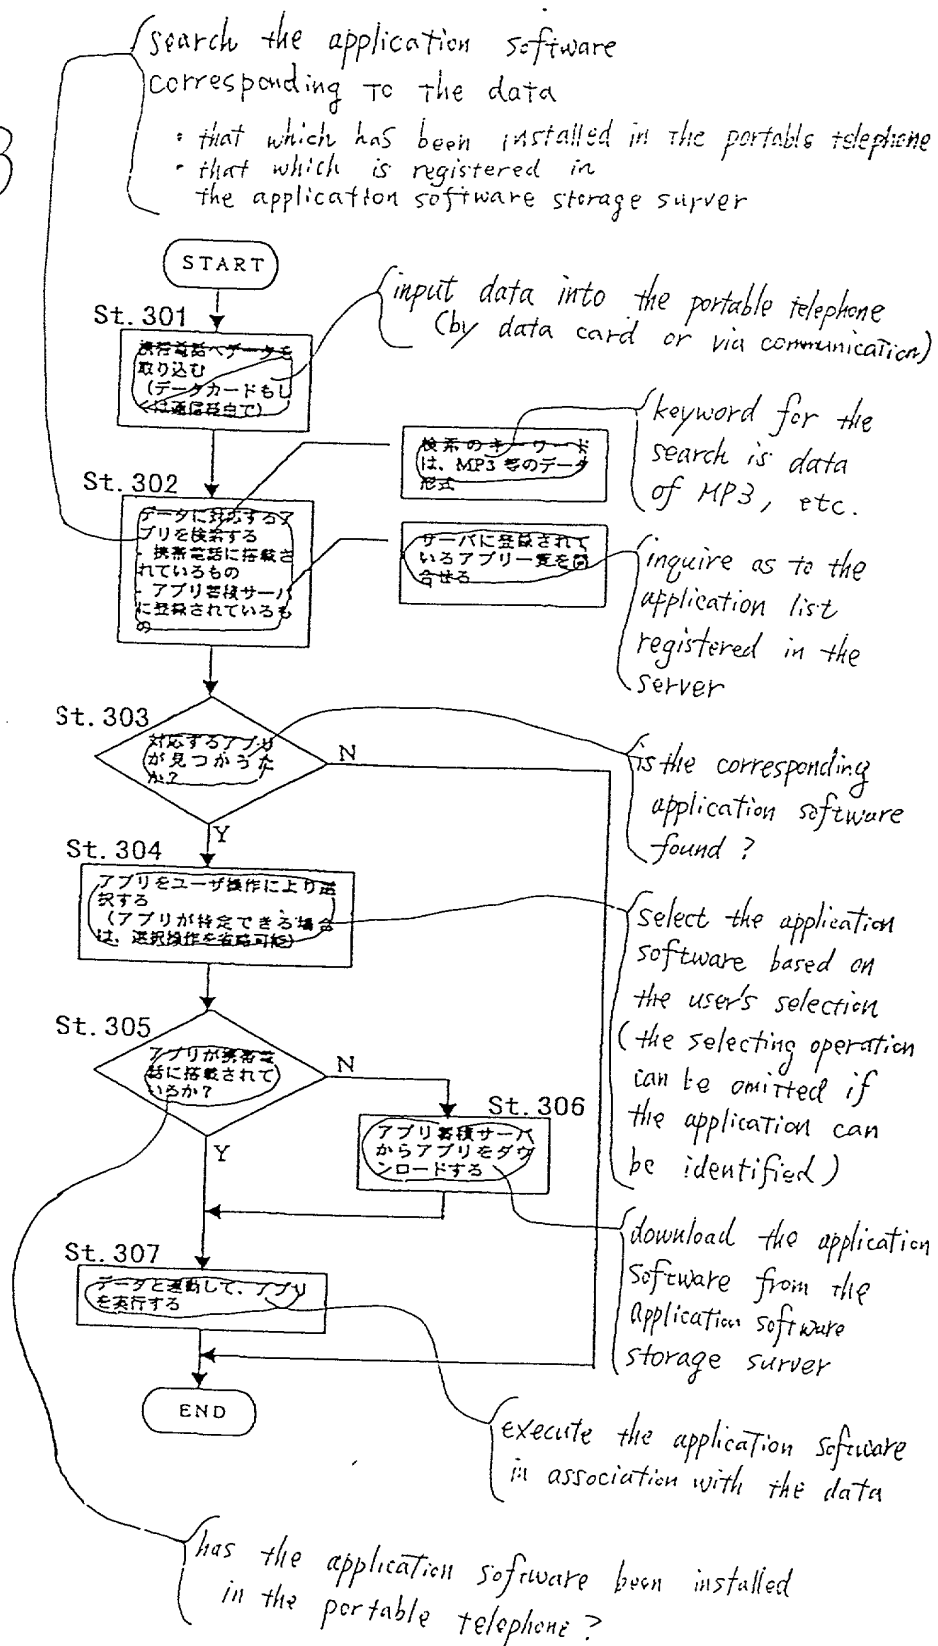 search the application software
corresponding to the data
・that which has been installed in the portable telephone
・that which is registered in
the application software storage surver
START
St.301
携帯電話へデータを
取り込む
(データカードもし
くは通信経由で)
input data into the portable telephone
(by data card or via communication)
St.302
データに対応するア
プリを検索する
- 携帯電話に搭載さ
れているもの
- アプリ蓄積サーバ
に登録されているも
の
検索のキーワード
は、MP3 等のデータ
形式
keyword for the
search is data
of MP3, etc.
サーバに登録されて
いるアプリ一覧を問
合せる
inquire as to the
application list
registered in the
server
St.303
対応するアプリ
が見つかった
か?
N
Y
is the corresponding
application software
found?
St.304
アプリをユーザ操作により選
択する
(アプリが特定できる場合
は、選択操作を省略可能)
select the application
software based on
the user's selection
(the selecting operation
can be omitted if
the application can
be identified)
St.305
アプリが携帯電
話に搭載されて
いるか?
N
Y
St.306
アプリ蓄積サーバ
からアプリをダウ
ンロードする
download the application
software from the
application software
storage surver
St.307
データと連動して、アプリ
を実行する
END
execute the application software
in association with the data
has the application software been installed
in the portable telephone?